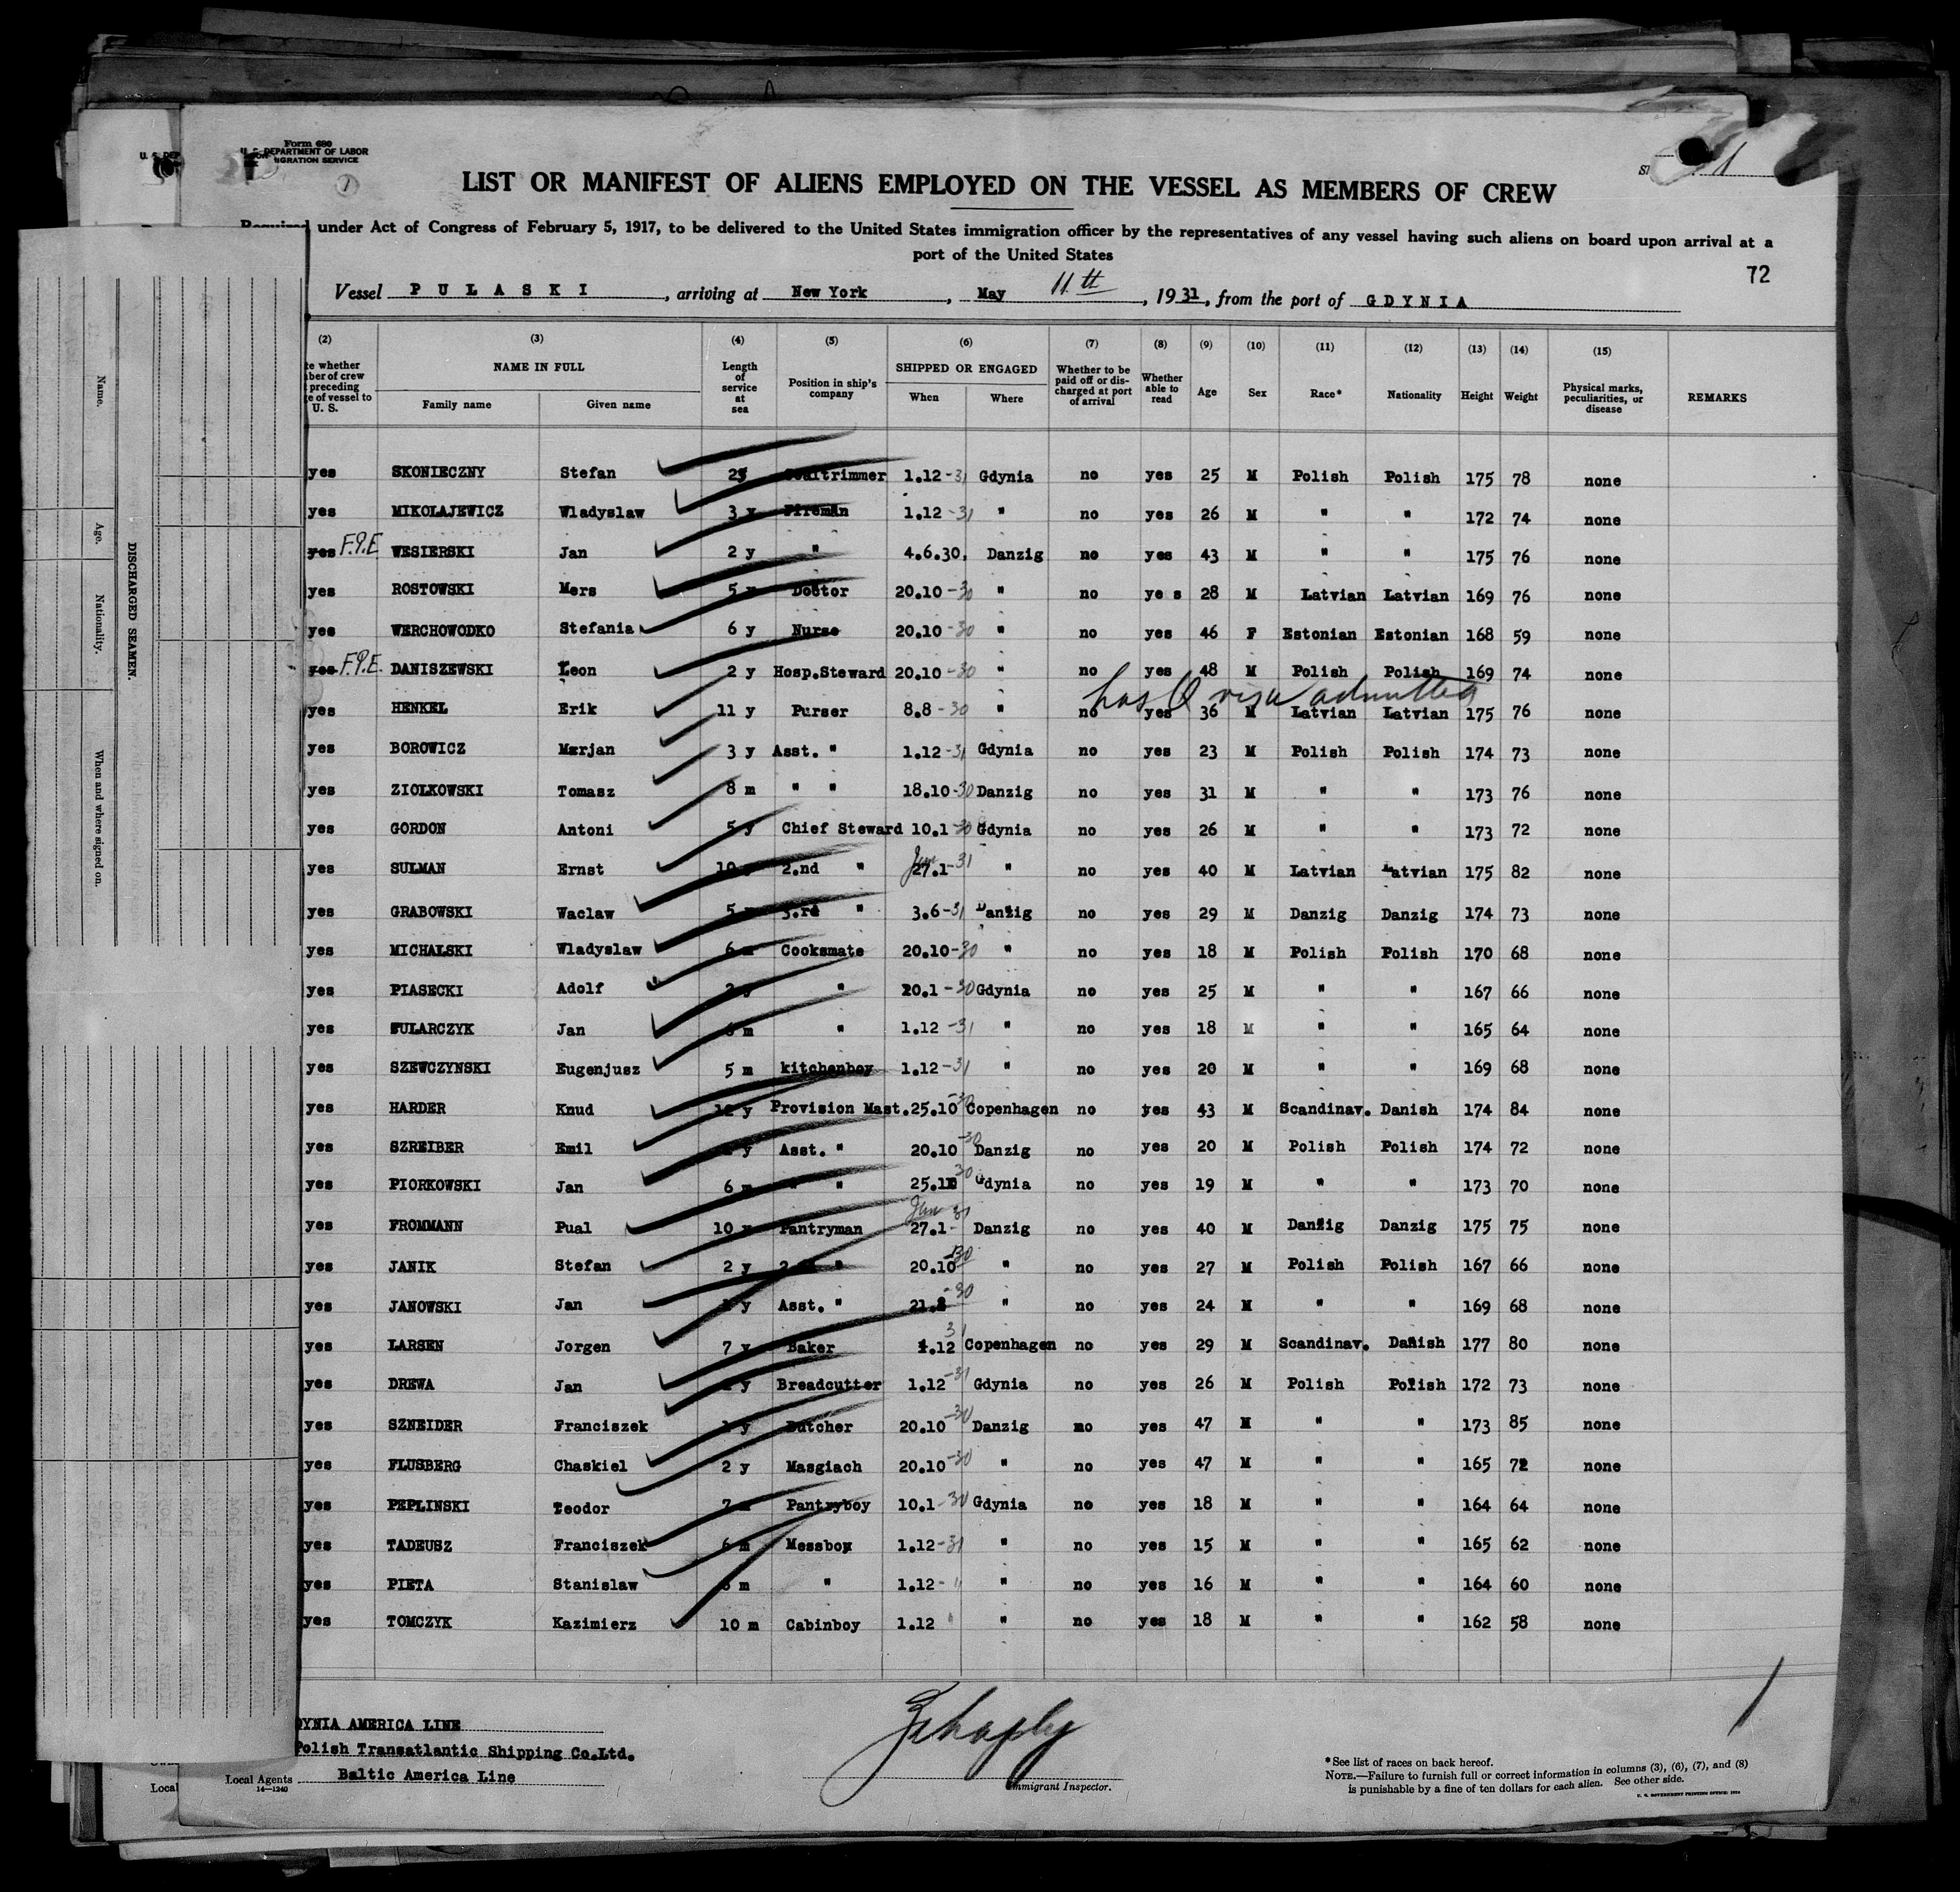 Form 680
U. S. DEPARTMENT OF LABOR
IGRATION SERVICE
LIST OR MANIFEST OF ALIENS EMPLOYED ON THE VESSEL AS MEMBERS OF CREW
Required under Act of Congress of February 5, 1917, to be delivered to the United States immigration officer by the representatives of any vessel having such aliens on board upon arrival at a
port of the United States
72
Vessel PULASKI, arriving at New York, May 11th, 1931, from the port of GDYNIA
(2) (3) (4) (5) (6) (7) (8) (9) (10) (11) (12) (13) (14) (15)
te whether ber of crew preceding e of vessel to U. S. NAME IN FULL Family name Given name Length of service at sea Position in ship's company SHIPPED OR ENGAGED When Where Whether to be paid off or discharged at port of arrival Whether able to read Age Sex Race* Nationality Height Weight Physical marks, peculiarities, or disease REMARKS
yes SKONIECZNY Stefan 2y Coaltrimmer 1.12-31 Gdynia no yes 25 M Polish Polish 175 78 none
yes MIKOLAJEWICZ Wladyslaw 3 y Fireman 1.12-31 " no yes 26 M " " 172 74 none
yes F.P.E WESIERSKI Jan 2 y " 4.6.30. Danzig no yes 43 M " " 175 76 none
yes ROSTOWSKI Mers 5 y Doctor 20.10-30 " no ye s 28 M Latvian Latvian 169 76 none
yes WERCHOWODKO Stefania 6 y Nurse 20.10-30 " no yes 46 F Estonian Estonian 168 59 none
yes F.P.E. DANISZEWSKI Leon 2 y Hosp.Steward 20.10-30 " no yes 48 M Polish Polish 169 74 none
has visa admitted
yes HENKEL Erik 11 y Purser 8.8-30 " no yes 36 M Latvian Latvian 175 76 none
yes BOROWICZ Marjan 3 y Asst. " 1.12-31 Gdynia no yes 23 M Polish Polish 174 73 none
yes ZIOLKOWSKI Tomasz 8 m " " 18.10-30 Danzig no yes 31 M " " 173 76 none
yes GORDON Antoni 5 y Chief Steward 10.1-30 Gdynia no yes 26 M " " 173 72 none
yes SULMAN Ernst 10 y 2.nd " Jan 27.1-31 " no yes 40 M Latvian Latvian 175 82 none
yes GRABOWSKI Waclaw 5 3.rd " 3.6-31 Danzig no yes 29 M Danzig Danzig 174 73 none
yes MICHALSKI Wladyslaw 6 m Cooksmate 20.10-30 " no yes 18 M Polish Polish 170 68 none
yes PIASECKI Adolf y " 20.1-30 Gdynia no yes 25 M " " 167 66 none
yes FULARCZYK Jan 6 m " 1.12-31 " no yes 18 M " " 165 64 none
yes SZEWCZYNSKI Eugenjusz 5 m kitchenboy 1.12-31 " no yes 20 M " " 169 68 none
yes HARDER Knud 12 y Provision Mast. 25.10-30 Copenhagen no yes 43 M Scandinav. Danish 174 84 none
yes SZREIBER Emil y Asst. " 20.10-30 Danzig no yes 20 M Polish Polish 174 72 none
yes PIORKOWSKI Jan 6 m " " 25.10 30 Gdynia no yes 19 M " " 173 70 none
yes FROMMANN Pual 10 y Pantryman Jan 27.1-31 Danzig no yes 40 M Danzig Danzig 175 75 none
yes JANIK Stefan 2 y " 20.10-30 " no yes 27 M Polish Polish 167 66 none
yes JANOWSKI Jan y Asst. " 21.8-30 " no yes 24 M " " 169 68 none
yes LARSEN Jorgen 7 y Baker 1.12 31 Copenhagen no yes 29 M Scandinav. Danish 177 80 none
yes DREWA Jan y Breadcutter 1.12-31 Gdynia no yes 26 M Polish Polish 172 73 none
yes SZNEIDER Franciszek y Butcher 20.10-30 Danzig no yes 47 M " " 173 85 none
yes FLUSBERG Chaskiel 2 y Masgiach 20.10-30 " no yes 47 M " " 165 72 none
yes PEPLINSKI Teodor 7 m Pantryboy 10.1-30 Gdynia no yes 18 M " " 164 64 none
yes TADEUSZ Franciszek 6 m Messboy 1.12-31 " no yes 15 M " " 165 62 none
yes PIETA Stanislaw m " 1.12-" " no yes 16 M " " 164 60 none
yes TOMCZYK Kazimierz 10 m Cabinboy 1.12 " " no yes 18 M " " 162 58 none
DYNIA AMERICA LINE
Polish Transatlantic Shipping Co.Ltd.
Local Agents Baltic America Line
14—1240
Immigrant Inspector.
*See list of races on back hereof.
NOTE.—Failure to furnish full or correct information in columns (3), (6), (7), and (8)
is punishable by a fine of ten dollars for each alien. See other side.
U. S. GOVERNMENT PRINTING OFFICE
Local
DISCHARGED SEAMEN.
Name.
Age.
Nationality.
When and where signed on.